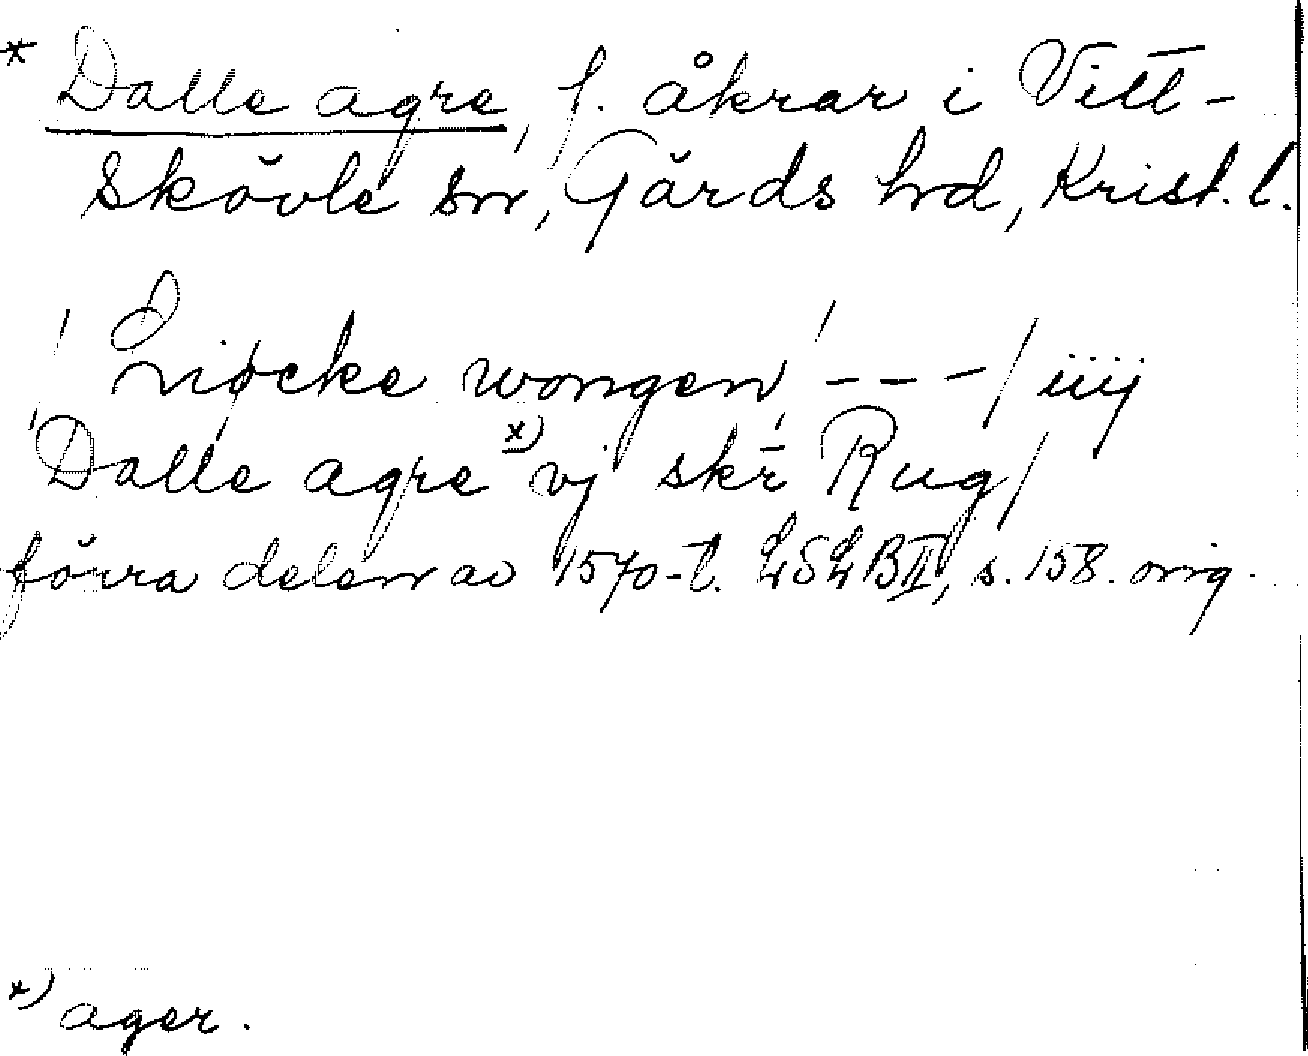 * Dalle agre, f. åkrar i Vitt-
skövle sn, Gärds hd, Krist. l.
/ Liøcke wongen / - - - / iiij
Dalle agre x) vj skr̄ Rug /
förra delen av 1570-t. LSLB II, s. 158. orig.
x) ager.